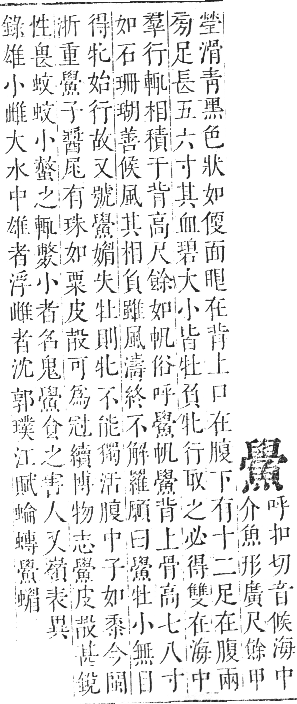 鱟
呼扣切音候海中
介魚形廣尺餘甲
瑩滑青黑色狀如傁面眼在背上口在腹下有十二足在腹兩
旁足長五六寸其血碧大小皆牡負牝行取之必得雙在海中
羣行輒相積于背高尺餘如帆俗呼鱟帆鱟背上骨高七八寸
如石珊瑚善候風其相負雖風濤終不解羅願曰鱟牡小無目
得牝始行故又號鱟媚失牡則牝不能獨活腹中子如黍今閩
浙重鱟子醬尾有珠如粟皮殻可為冠續博物志鱟皮殻甚銳
性畏蚊蚊小螫之輒斃小者名鬼鱟食之害人又嶺表異
錄雄小雌大水中雄者浮雌者沈郭璞江賦蜦鱟蝞